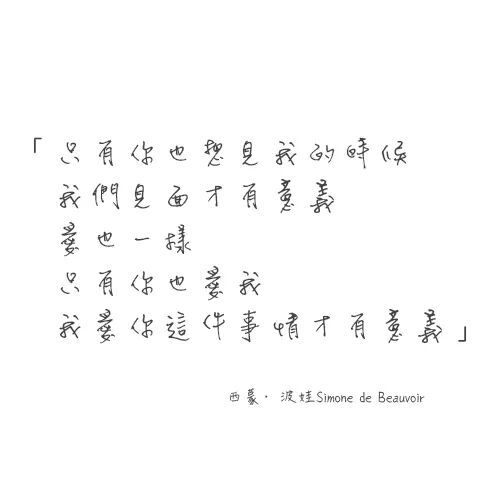 「只有你也想見我的時候
我們見面才有意義
愛也一樣
只有你也愛我
我愛你這件事情才有意義」
西蒙· 波娃Simone de Beauvoir